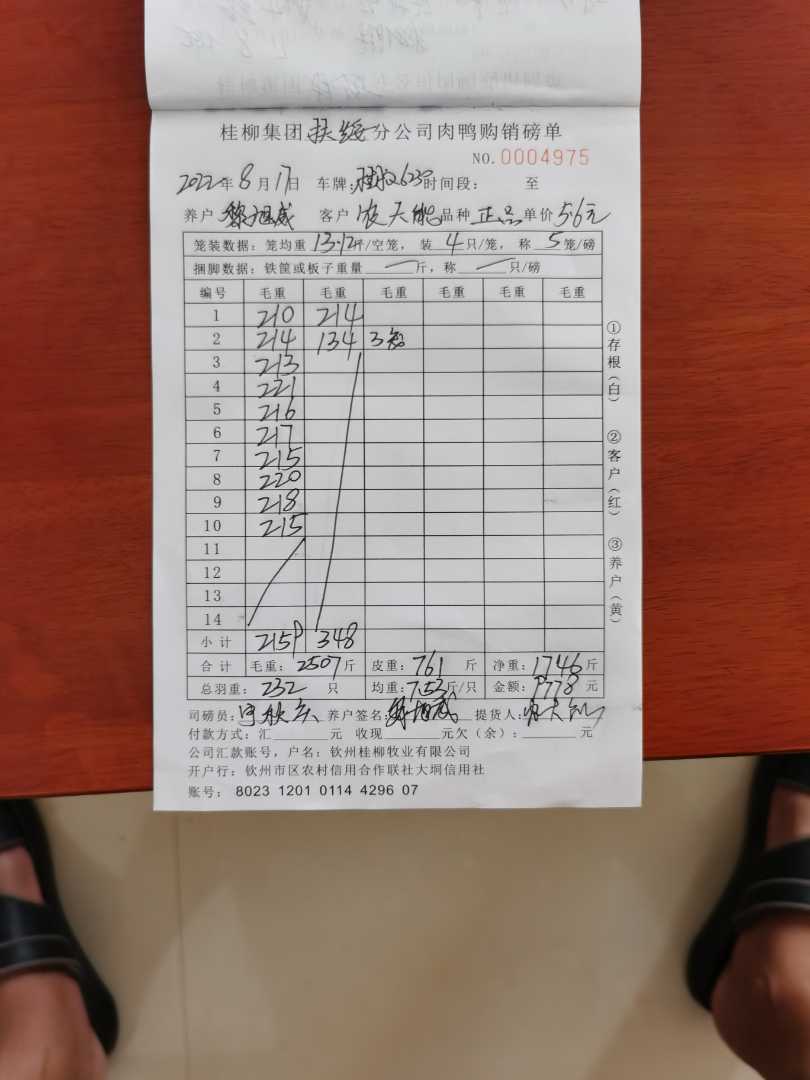 桂柳集团扶绥分公司肉鸭购销磅单
NO.0004975
2022年8月17日 车牌: 时间段: 至
养户 黎旭威 客户 农天能 品种 正品 单价 5.6元
笼装数据: 笼均重 13.12斤/空笼, 装 4 只/笼, 称 5 笼/磅
捆脚数据: 铁筐或板子重量 一 斤, 称 一 只/磅
编号 毛重 毛重 毛重 毛重 毛重 毛重
1 210 214
2 214 134 3笼
3 213
4 221
5 216
6 217
7 215
8 220
9 218
10 215
11
12
13
14
小计 2159 348
合计 毛重: 2507斤 皮重: 761 斤 净重: 1746斤
总羽重: 232 只 均重: 7.53斤/只 金额: 9778 元
司磅员: 养户签名: 黎旭威 提货人: 农天能
付款方式: 汇______元 收现______元欠(余): ______元
公司汇款账号, 户名: 钦州桂柳牧业有限公司
开户行: 钦州市区农村信用合作联社大垌信用社
账号: 8023 1201 0114 4296 07
①存根(白) ②客户(红) ③养户(黄)